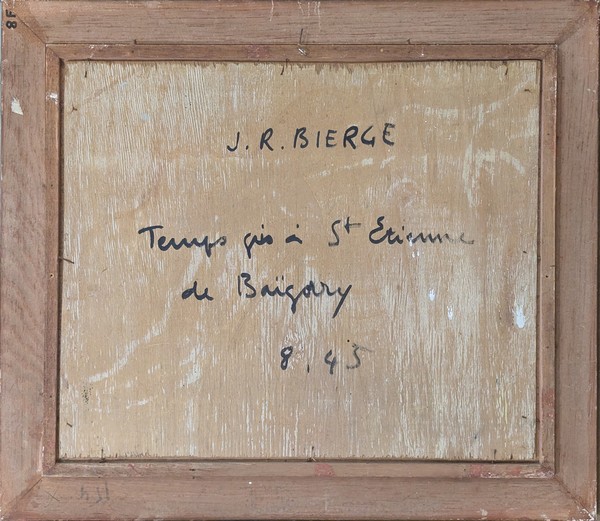 8F
J. R. BIERGE
Temps gris à St Etienne
de Baïgorry
8.45